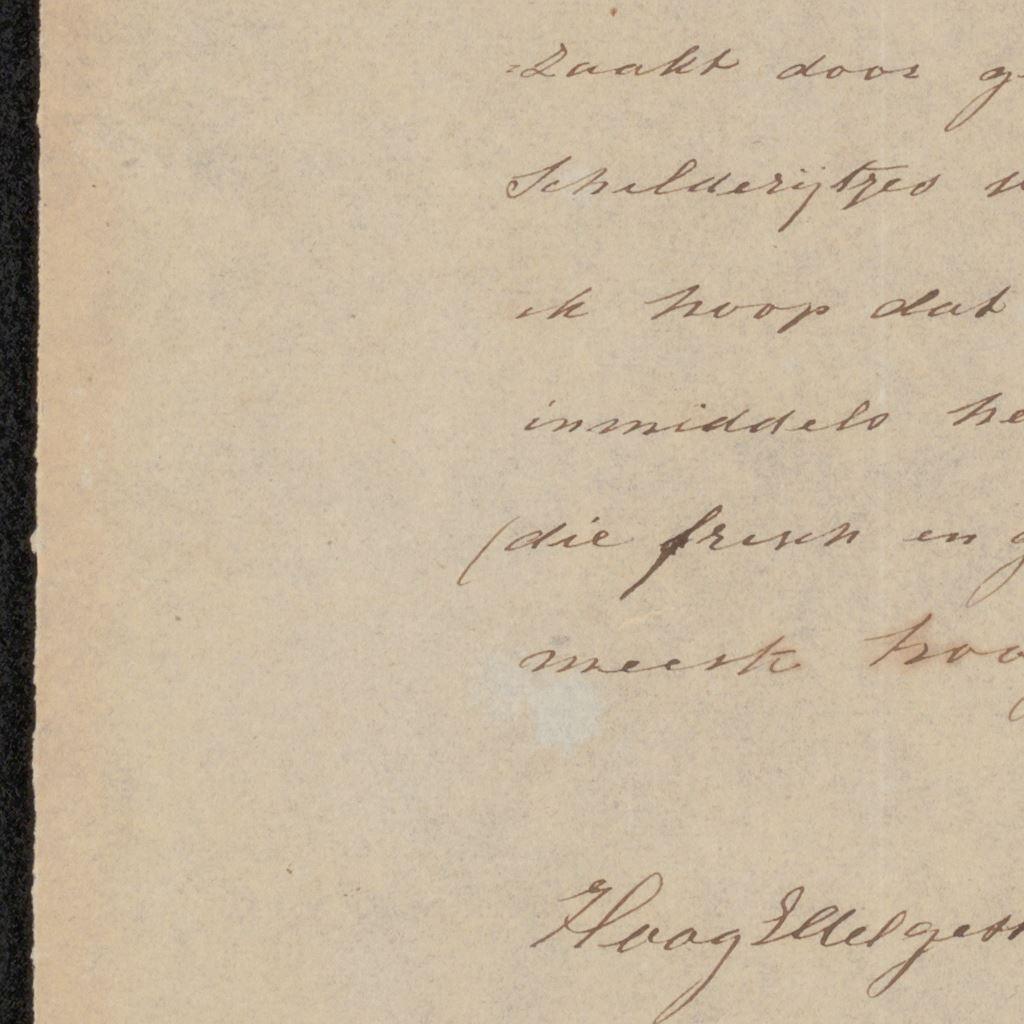 =zaakt door g
Schilderijtjes
ik hoop dat
inmiddels he
(die frisch en g
meest hoo
Hoog Edelgest